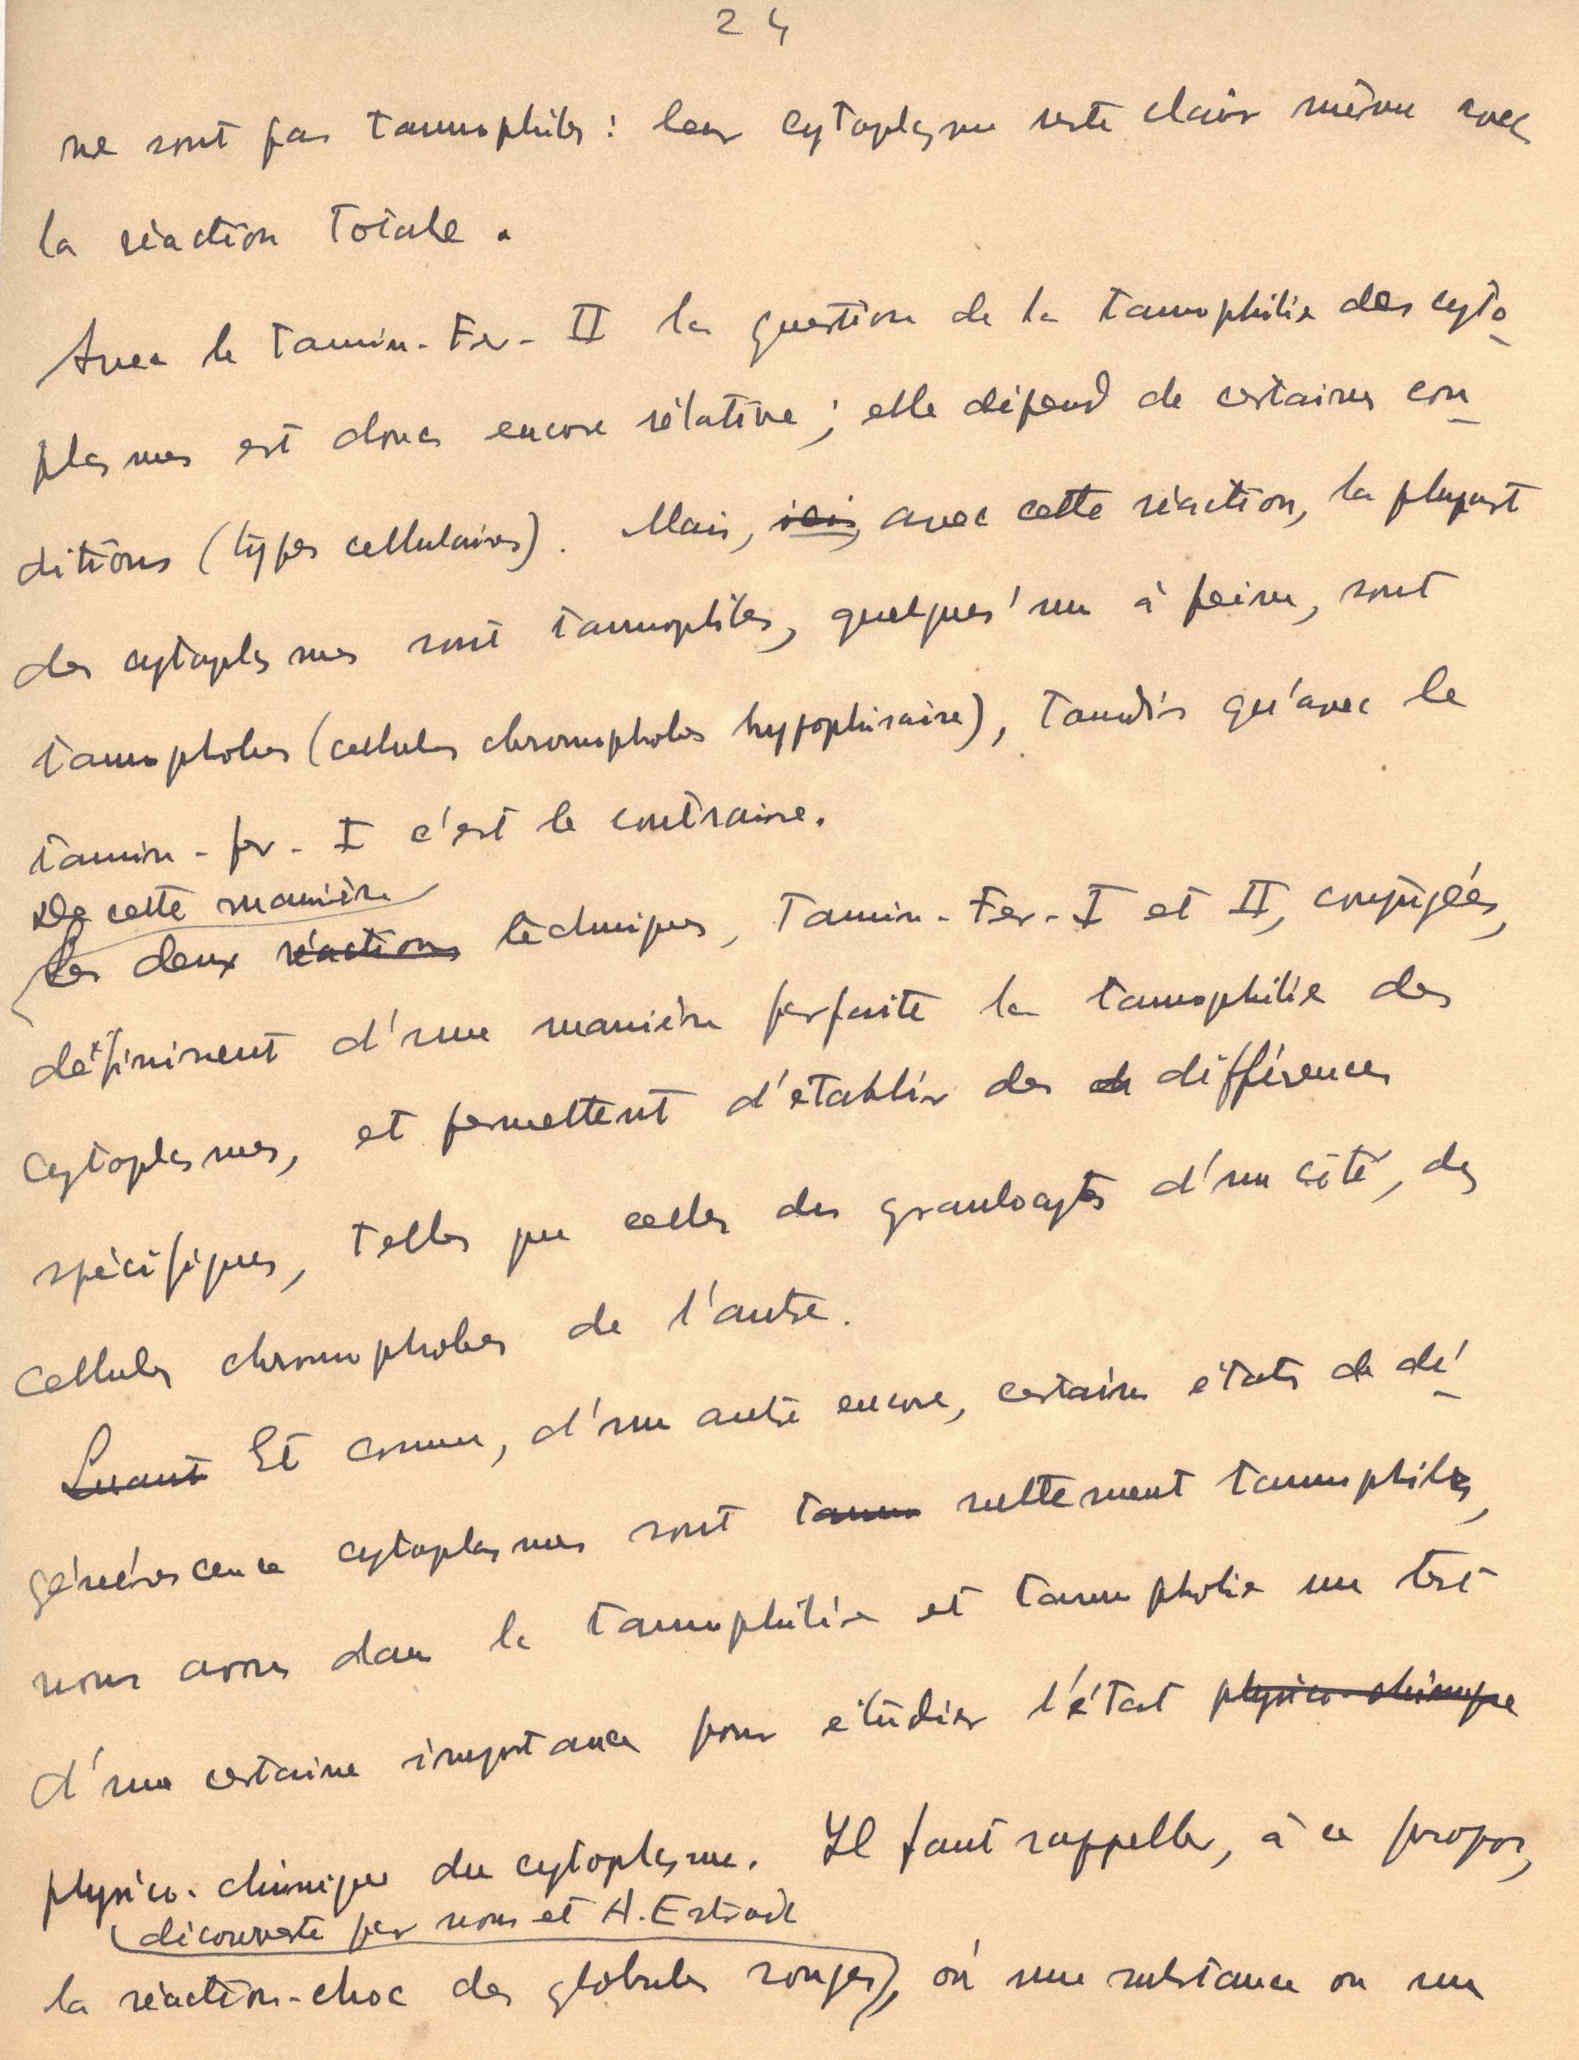 24
ne sont pas tannophiles : leur cytoplasme reste clair même avec
la réaction totale.
Avec le tannin-Fer-II la question de la tannophilie des cyto-
plasmes est donc encore rélative ; elle dépend de certaines con-
ditions (types cellulaires). Mais, ici, avec cette réaction, la plupart
des cytoplasmes sont tannophiles, quelques'un à peine, sont
tannophobes (cellules chromophobes hypophisaire), tandis qu'avec le
tannin-fer-I c'est le contraire.
De cette manière
Les deux réactions techniques, Tannin-Fer-I et II, conjugées,
définissent d'une manière parfaite la tannophilie des
cytoplasmes, et permettent d'établir des de différences
spécifiques, telles que celles des granulocytes d'un côté, des
cellules chromophobes de l'autre.
Quant Et comme, d'un autre encore, certains états de dé-
générescence cytoplasmes sont tanno nettement tannophiles,
nous avons dans la tannophilie et tannophobie un test
d'une certaine importance pour étudier l'état physico-chimique
physico-chimique du cytoplasme. Il faut rappeller, à ce propos,
(découverte par nous et A. Estrade
la réaction-choc des globules rouges), où une substance ou un